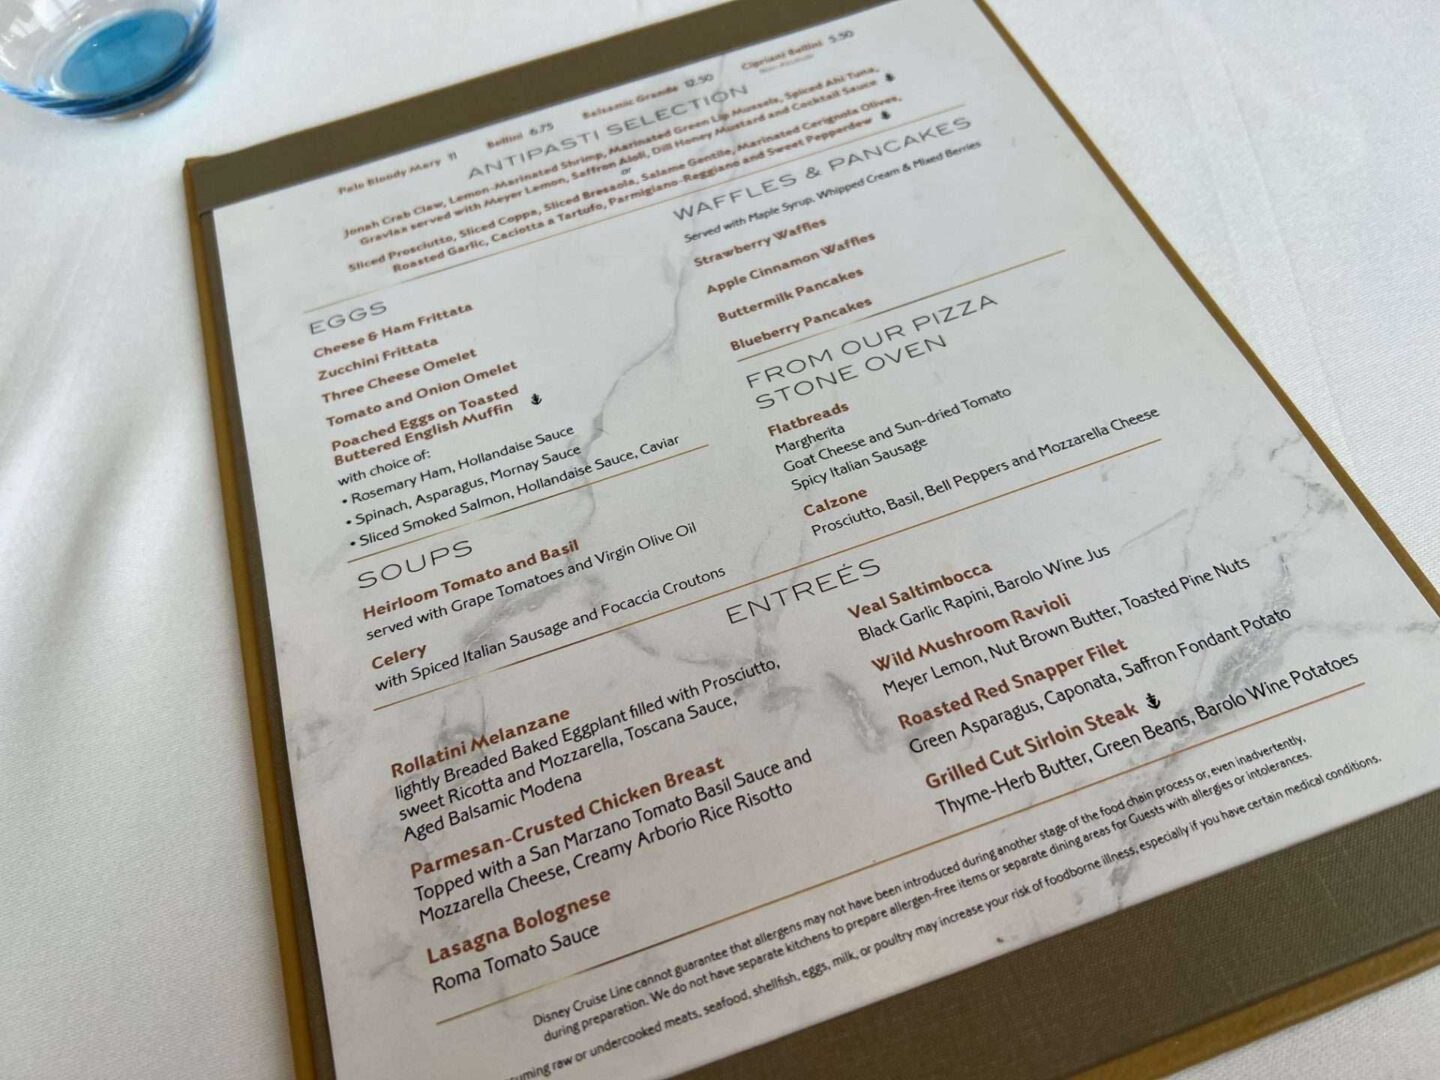 Palo Bloody Mary 11
Bellini 6.75
Balsamic Grande 12.50
Cipriani Bellini 5.50
ANTIPASTI SELECTION
Jonah Crab Claw, Lemon-Marinated Shrimp, Marinated Green Lip Mussels, Spiced Ahi Tuna,
Gravlax served with Meyer Lemon, Saffron Aioli, Dill Honey Mustard and Cocktail Sauce
or
Sliced Prosciutto, Sliced Coppa, Sliced Bresaola, Salame Gentile, Marinated Cerignola Olives,
Roasted Garlic, Caciotta a Tartufo, Parmigiano-Reggiano and Sweet Pepperdew
EGGS
Cheese & Ham Frittata
Zucchini Frittata
Three Cheese Omelet
Tomato and Onion Omelet
Poached Eggs on Toasted
Buttered English Muffin
with choice of:
• Rosemary Ham, Hollandaise Sauce
• Spinach, Asparagus, Mornay Sauce
• Sliced Smoked Salmon, Hollandaise Sauce, Caviar
WAFFLES & PANCAKES
Served with Maple Syrup, Whipped Cream & Mixed Berries
Strawberry Waffles
Apple Cinnamon Waffles
Buttermilk Pancakes
Blueberry Pancakes
SOUPS
Heirloom Tomato and Basil
served with Grape Tomatoes and Virgin Olive Oil
Celery
with Spiced Italian Sausage and Focaccia Croutons
FROM OUR PIZZA
STONE OVEN
Flatbreads
Margherita
Goat Cheese and Sun-dried Tomato
Spicy Italian Sausage
Calzone
Prosciutto, Basil, Bell Peppers and Mozzarella Cheese
ENTREÉS
Rollatini Melanzane
lightly Breaded Baked Eggplant filled with Prosciutto,
sweet Ricotta and Mozzarella, Toscana Sauce,
Aged Balsamic Modena
Parmesan-Crusted Chicken Breast
Topped with a San Marzano Tomato Basil Sauce and
Mozzarella Cheese, Creamy Arborio Rice Risotto
Lasagna Bolognese
Roma Tomato Sauce
Veal Saltimbocca
Black Garlic Rapini, Barolo Wine Jus
Wild Mushroom Ravioli
Meyer Lemon, Nut Brown Butter, Toasted Pine Nuts
Roasted Red Snapper Filet
Green Asparagus, Caponata, Saffron Fondant Potato
Grilled Cut Sirloin Steak
Thyme-Herb Butter, Green Beans, Barolo Wine Potatoes
Disney Cruise Line cannot guarantee that allergens may not have been introduced during another stage of the food chain process or, even inadvertently,
during preparation. We do not have separate kitchens to prepare allergen-free items or separate dining areas for Guests with allergies or intolerances.
raw or undercooked meats, seafood, shellfish, eggs, milk, or poultry may increase your risk of foodborne illness, especially if you have certain medical conditions.